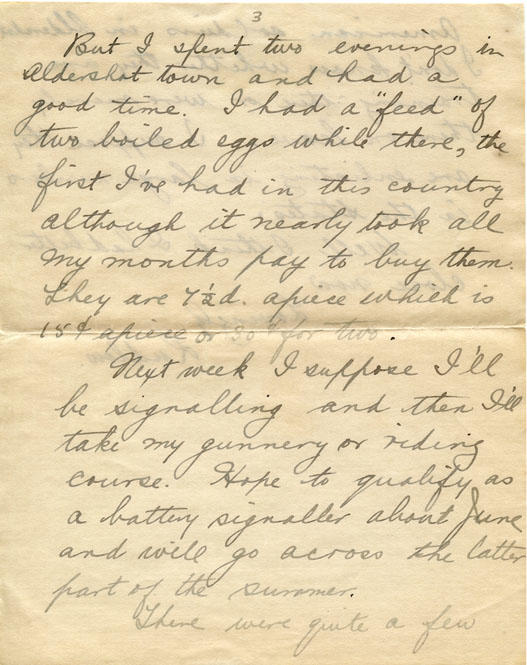 3
But I spent two evenings in
Aldershot town and had a
good time. I had a "feed" of
two boiled eggs while there, the
first I've had in this country
although it nearly took all
my months pay to buy them.
They are 7½d. apiece which is
15¢ apiece or 30¢ for two.
Next week I suppose I'll
be signalling and then I'll
take my gunnery or riding
course. Hope to qualify as
a battery signaller about June
and will go across the latter
part of the summer.
There were quite a few